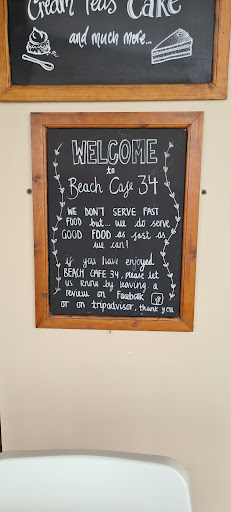 Cream Teas Cake
and much more...
WELCOME
to
Beach Cafe 34
WE DON'T SERVE FAST
FOOD but... we do serve
GOOD FOOD as fast as
we can!
if you have enjoyed
BEACH CAFE 34, please let
us know by leaving a
review on Facebook
or on tripadvisor, thank you